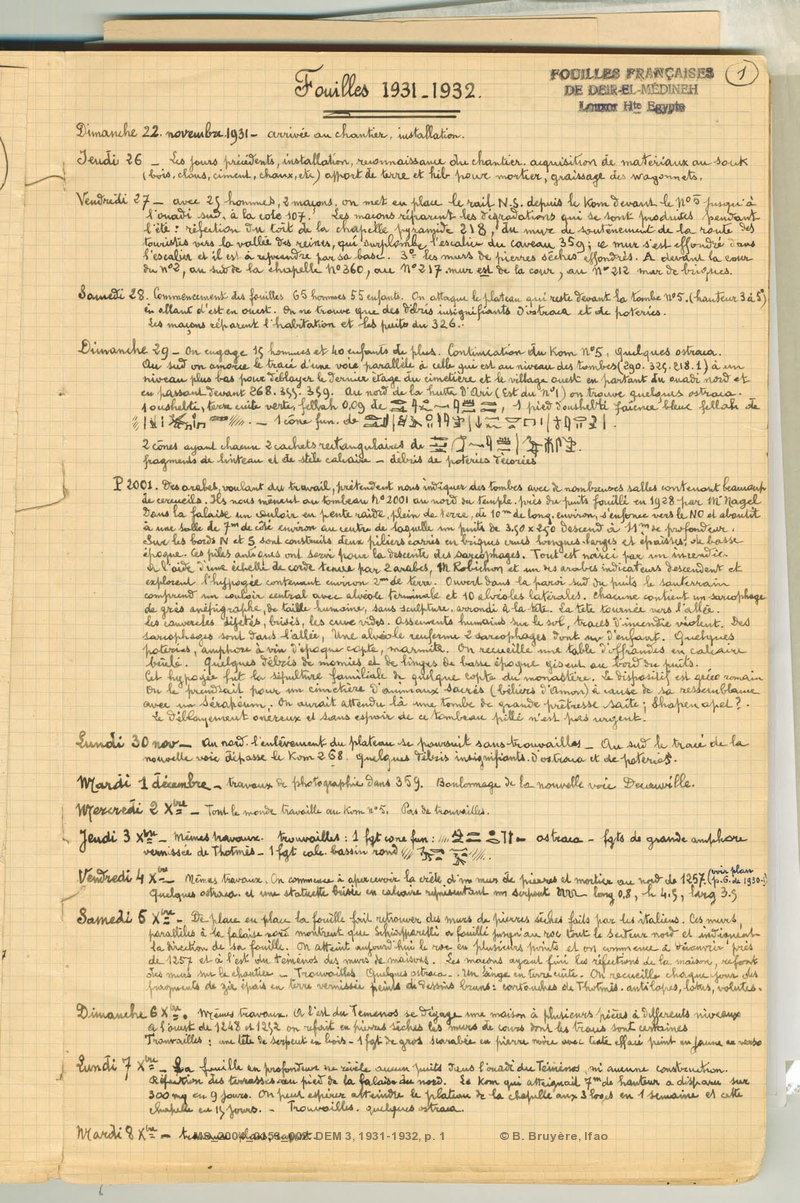 Fouilles 1931-1932.
FOUILLES FRANÇAISES
DE DEIR-EL-MÉDINEH
Louxor Hte Egypte
1
Dimanche 22 novembre 1931 - arrivée au chantier, installation.
Jeudi 26 - Les jours précédents, installation, reconnaissance du chantier. acquisition de matériaux au souk
(bois, clous, ciment, chaux, etc) apport de terre et hib pour mortier, graissage des wagonnets.
Vendredi 27 - avec 25 hommes, 2 maçons, on met en place le rail N.S. depuis le Kom devant le N° 5 jusqu'à
l'ouadi sud, à la cote 107. Les maçons réparent les dégradations qui se sont produites pendant
l'été : réfection du toit de la chapelle pyramide 218, du mur de soutènement de la route des
touristes vers la vallée des reines, qui surplombe l'escalier du caveau 359; ce mur s'est effondré dans
l'escalier et il est à reprendre par sa base. 3° les murs de pierres sèches effondrés. A devant la cour
du n°2, au sud de la chapelle N°360, au N°217 mur est de la cour, au N°212 mur de briques.
Samedi 28. Commencement des fouilles 65 hommes 55 enfants. On attaque le plateau qui reste devant la tombe N°5. (hauteur 3 à 5m)
en allant d'est en ouest. On ne trouve que des débris insignifiants d'ostraca et de poteries.
Les maçons réparent l'habitation et les puits du 326.
Dimanche 29 - On engage 15 hommes et 40 enfants de plus. Continuation du Kom N°5, quelques ostraca.
Au sud on amorce le tracé d'une voie parallèle à celle qui est au niveau des tombes (290. 325. 218. 1) à un
niveau plus bas pour déblayer le dernier étage du cimetière et le village ouest en partant du ouadi nord et
en passant devant 268. 355. 359. Au nord de la hutte d'Ari (Est du N°1) on trouve quelques ostraca.
1 oushebti, terre cuite verte, fellah 0,09 de , 1 pied d'oushebti faïence bleue fellah de
- 1 cône fun. de
2 cônes ayant chacun 2 cachets rectangulaires de
fragments de linteau et de stèle calcaire - débris de poteries décorées
P 2001. Des arabes, voulant du travail, prétendent nous indiquer des tombes avec de nombreuses salles contenant beaucoup
de cercueils. Ils nous mènent au tombeau N°2001 au nord du temple, près du puits fouillé en 1928 par Mr Nagel
Dans la falaise un couloir en pente raide, plein de terre, de 10m de long, environ, s'enfonce vers le NO et aboutit
à une salle de 7m de côté environ au centre de laquelle un puits de 3.50 x 2.50 descend à 11m de profondeur.
Sur les bords N et S sont construits deux piliers carrés en briques crues longues larges et épaisses, de basse
époque. Ces piles antiques ont servi pour la descente des sarcophages. Tout est noirci par un incendie.
A l'aide d'une échelle de corde tenue par 2 arabes, M. Robichon et un des arabes indicateurs descendent et
explorent l'hypogée contenant environ 2m de terre. Ouvert dans la paroi sud du puits le souterrain
comprend un couloir central avec alvéole terminale et 10 alvéoles latérales. Chacune contient un sarcophage
de grès anépigraphe, de taille humaine, sans sculpture, arrondi à la tête. La tête tournée vers l'allée.
Les couvercles sont jetés, brisés, les cuves vides. Ossements humains sur le sol, traces d'incendie violent. Des
sarcophages sont dans l'allée, Une alvéole renferme 2 sarcophages dont un d'enfant. Quelques
poteries, amphore à vin d'époque copte, marmite. On recueille une table d'offrandes en calcaire
brûlé. Quelques débris de momies et de linges de basse époque gisent au bord du puits.
Cet hypogée fut la sépulture familiale de quelque copte du monastère. Le dispositif est gréco romain
On le prendrait pour un cimetière d'animaux sacrés (béliers d'Amon) à cause de sa ressemblance
avec un Sérapéum. On aurait attendu là une tombe de grande prêtresse saïte; Shapenapet ?.
Le déblayement onéreux et sans espoir de ce tombeau pillé n'est pas urgent.
Lundi 30 nov - Au nord. l'enlèvement du plateau se poursuit sans trouvailles - Au sud le tracé de la
nouvelle voie dépasse le Kom 268. Quelques débris insignifiants d'ostraca et de poteries.
Mardi 1 décembre - travaux de photographie dans 359. Boulonnage de la nouvelle voie Decauville.
Mercredi 2 Xbre - Tout le monde travaille au Kom n°5. Pas de trouvailles.
Jeudi 3 Xbre - Mêmes travaux. trouvailles : 1 fgt cone fun : ostraca - fgts de grande amphore
vernissée de Thotmès - 1 fgt calc. bassin rond
Vendredi 4 Xbre - Mêmes travaux. On commence à apercevoir la crête d'un mur de pierres et mortier au nord de 1257. (voir plan
(p.G. de 1930-)
Quelques ostraca. et une statuette brisée en calcaire représentant un serpent long 0,8, h 4,5, larg 3.5
Samedi 5 Xbre - De place en place la fouille fait retrouver des murs de pierres sèches faits par les italiens. Ces murs,
parallèles à la falaise nord montrent que Schiaparelli a fouillé jusqu'au roc tout le secteur nord et indiquent
la direction de sa fouille. On atteint aujourd'hui le roc en plusieurs points et on commence à découvrir près
de 1257 et à l'est du téménos des murs de maisons. Les maçons ayant fini les réfections de la maison, refont
des murs sur le chantier - Trouvailles Quelques ostraca. Un singe en terre cuite. On recueille chaque jour des
fragments de zir épais en terre vernissée peints de dessins bruns: cartouches de Thotmès. antilopes, lotus, volutes.
Dimanche 6 Xbre. Mêmes travaux. A l'est du Temenos se dégage une maison à plusieurs pièces à différents niveaux
A l'ouest de 1248 et 1252 on refait en pierres sèches les murs de cours dont les traces sont certaines
Trouvailles : une tête de serpent en bois - 1 fgt de gros scarabée en pierre noire avec texte effacé peint en jaune au verso
Lundi 7 Xbre - La fouille en profondeur ne révèle aucun puits dans l'ouadi du Téménos, ni aucune construction.
Réfection des terrasses au pied de la falaise du nord. Le Kom qui atteignait 7m de hauteur a disparu sur
300 mq en 9 jours. On peut espérer atteindre le plateau de la chapelle aux 3 loges en 1 semaine et cette
chapelle en 15 jours. - Trouvailles. quelques ostraca.
Mardi 8 Xbre -
MS_2004_0155_002 DEM 3, 1931-1932, p. 1 © B. Bruyère, Ifao